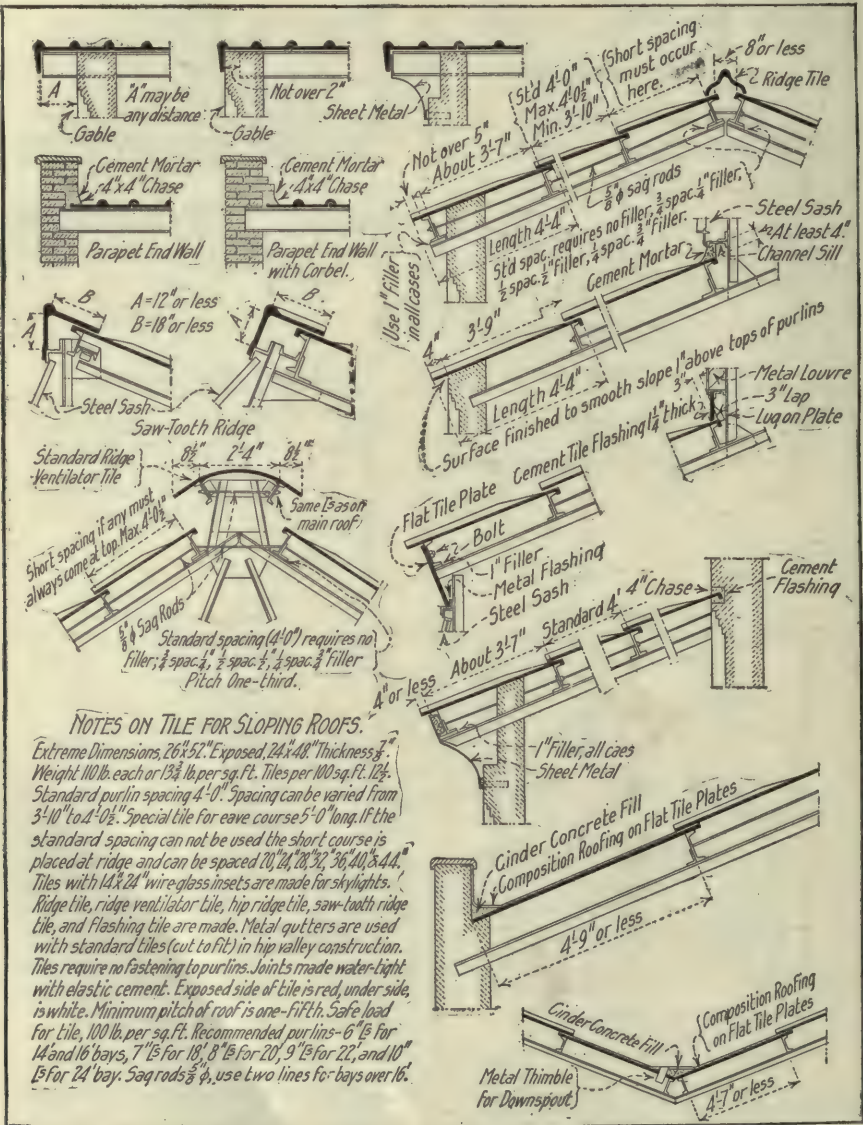 A
"A" may be
any distance
Gable
Not over 2"
Gable
Sheet Metal
Cement Mortar
4"x4" Chase
Parapet End Wall
Cement Mortar
4"x4" Chase
Parapet End Wall
with Corbel.
B
A
A=12" or less
B=18" or less
B
A
Steel Sash
Saw-Tooth Ridge
8½" 2'-4" 8½"
Standard Ridge
Ventilator Tile
Same [s as on
main roof
Short spacing if any must
always come at top. Max. 4'-0½"
⅝"ϕ Sag Rods
Standard spacing (4'-0") requires no
filler; ¾ spac. ¼", ½ spac. ½", ¼ spac. ¾" filler
Pitch One-third.
Short spacing
must occur
here.
8" or less
Ridge Tile
Std 4'-0"
Max. 4'-0½"
Min. 3'-10"
Not over 5"
About 3'-7"
⅝"ϕ sag rods
Length 4'-4"
Std spac. requires no filler, ¾ spac. ¼" filler,
½ spac. ½" filler, ¼ spac. ¾" filler.
Use 1" filler
in all cases
Steel Sash
At least 4"
Channel Sill
Cement Mortar
4" 3'-9"
Length 4'-4"
Surface finished to smooth slope 1" above tops of purlins
Metal Louvre
3"
3" Lap
Lug on Plate
Cement Tile Flashing 1¼" thick
Flat Tile Plate
Bolt
1" Filler
Metal Flashing
Steel Sash
A
4" Chase
Cement
Flashing
4" or less
About 3'-7"
Standard 4'
1" Filler, all caes
Sheet Metal
Cinder Concrete Fill
Composition Roofing on Flat Tile Plates
4'-9" or less
Cinder Concrete Fill
Composition Roofing
on Flat Tile Plates
Metal Thimble
for Downspout
4'-7" or less
NOTES ON TILE FOR SLOPING ROOFS.
Extreme Dimensions, 26"x52". Exposed, 24"x48". Thickness ⅞".
Weight 110 lb. each or 13¾ lb. per sq. ft. Tiles per 100 sq. ft. 12½.
Standard purlin spacing 4'-0". Spacing can be varied from
3'-10" to 4'-0½". Special tile for eave course 5'-0" long. If the
standard spacing can not be used the short course is
placed at ridge and can be spaced 20", 24", 28", 32", 36", 40", & 44."
Tiles with 14"x24" wire-glass insets are made for skylights.
Ridge tile, ridge ventilator tile, hip ridge tile, saw-tooth ridge
tile, and flashing tile are made. Metal gutters are used
with standard tiles (cut to fit) in hip valley construction.
Tiles require no fastening to purlins. Joints made water-tight
with elastic cement. Exposed side of tile is red, under side,
is white. Minimum pitch of roof is one-fifth. Safe load
for tile, 100 lb. per sq. ft. Recommended purlins- 6" [s for
14' and 16' bays, 7" [s for 18', 8" [s for 20', 9" [s for 22', and 10"
[s for 24' bay. Sag rods ⅝"ϕ, use two lines for bays over 16'.